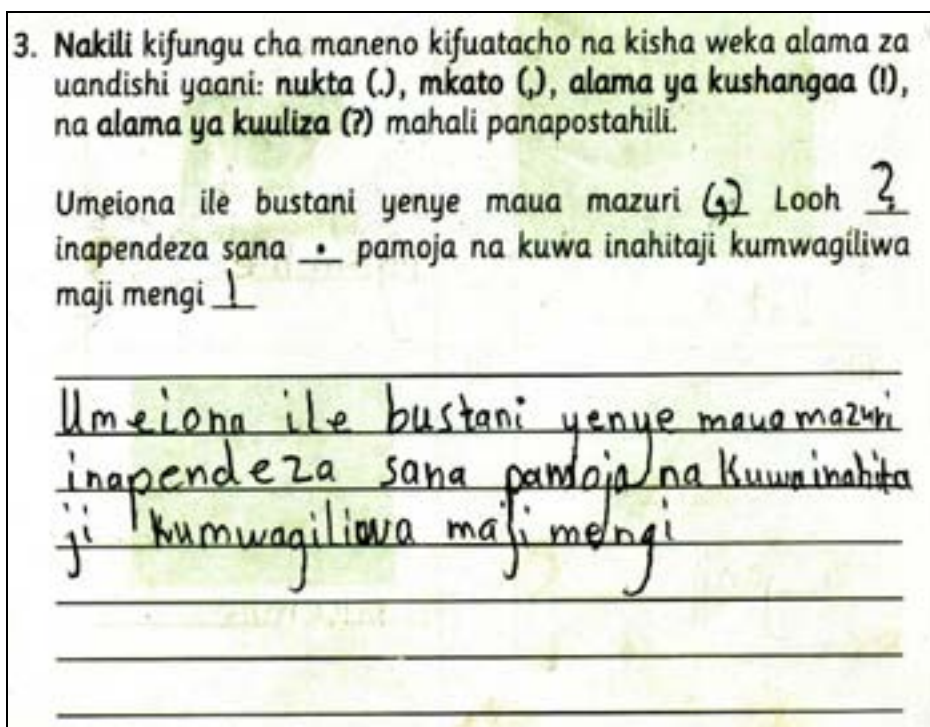 3. Nakili kifungu cha maneno kifuatacho na kisha weka alama za
uandishi yaani: nukta (.), mkato (,), alama ya kushangaa (!),
na alama ya kuuliza (?) mahali panapostahili.
Umeiona ile bustani yenye maua mazuri (,) Looh ?
inapendeza sana . pamoja na kuwa inahitaji kumwagiliwa
maji mengi !
Umeiona ile bustani yenye maua mazuri
inapendeza sana pamoja na Kuwa inahita
ji kumwagiliwa maji mengi